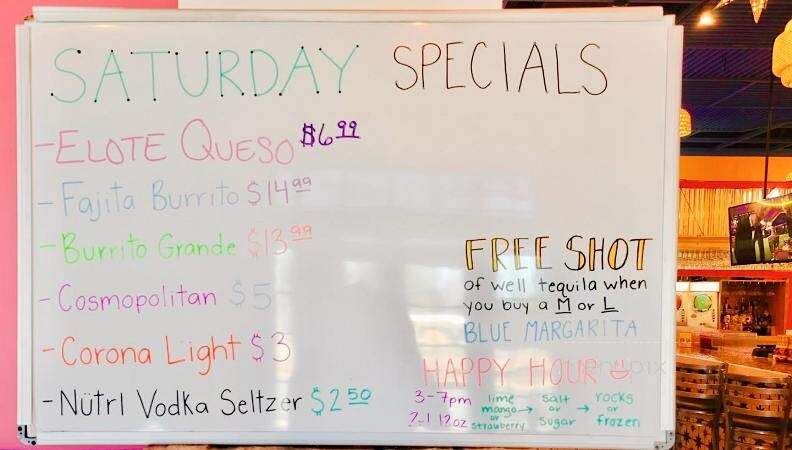 SATURDAY SPECIALS
- ELOTE QUESO $6.99
- Fajita Burrito $14.99
- Burrito Grande $13.99
- Cosmopolitan $5
- Corona Light $3
- Nütrl Vodka Seltzer $2.50
FREE SHOT
of well tequila when
you buy a M or L
BLUE MARGARITA
HAPPY HOUR
3-7pm
2-1 12oz
lime
mango
or
strawberry
→
salt
or
sugar
→
rocks
or
frozen